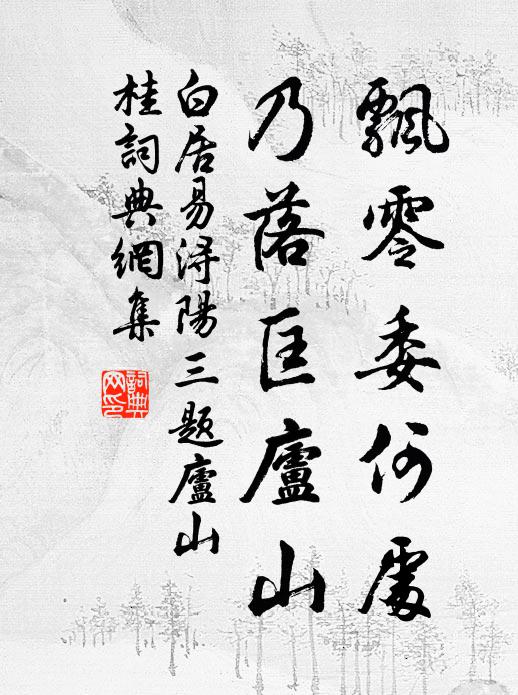 飄零委何處
乃落匡廬山
白居易潯陽三题廬山
桂詞典網集
詞典網印